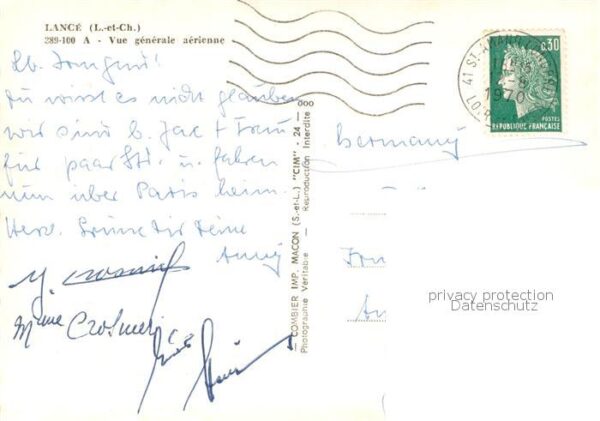 LANCÉ (L.-et-Ch.)
289-100 A - Vue générale aérienne
Lb.
Du wirst es nicht glauben
wir sind b. Jac + Frau
für paar Std. u. fahren
nun über Paris heim.
Herz. Grüne Dir Deine
Anny
M.
Mme Crosnier
COMBIER IMP. MACON (S.-et-L.) "CIM" - 24 - 000
Photographie Véritable - Reproduction Interdite
Germany
41 ST-AMAND
1970
0,30
POSTES
RÉPUBLIQUE FRANÇAISE
privacy protection
Datenschutz